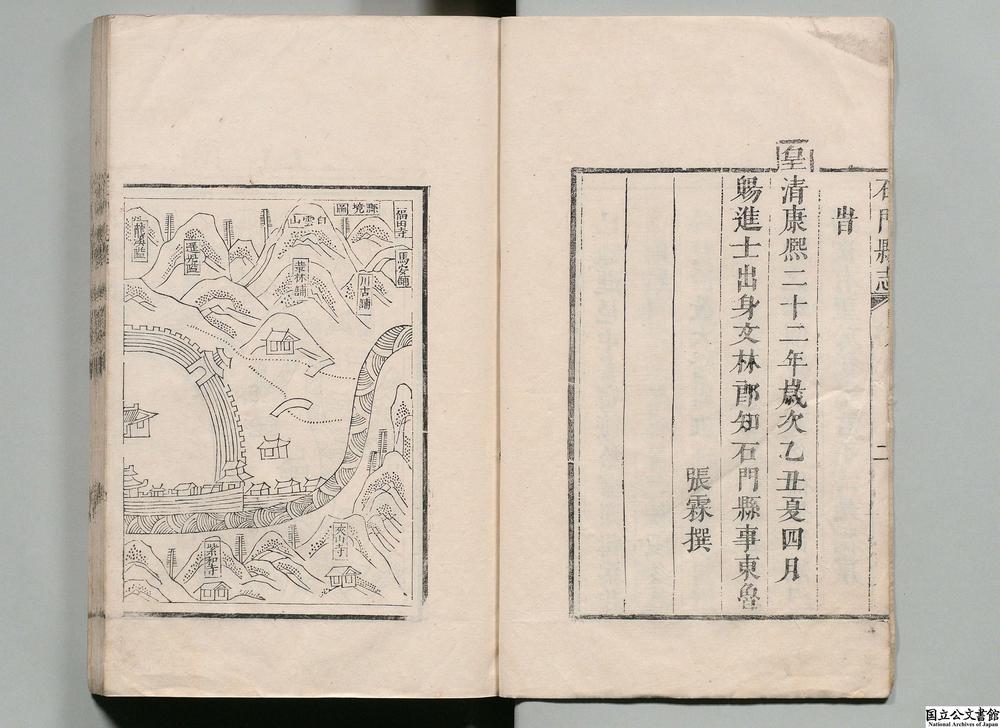 石門縣志
二
旹
皇清康熙二十二年歲次乙丑夏四月
賜進士出身文林郎知石門縣事東魯
張霖撰
福田寺
馬安舖
縣境圖
白雲山
川古舖
華林舖
夾山寺
国立公文書館
National Archives of Japan